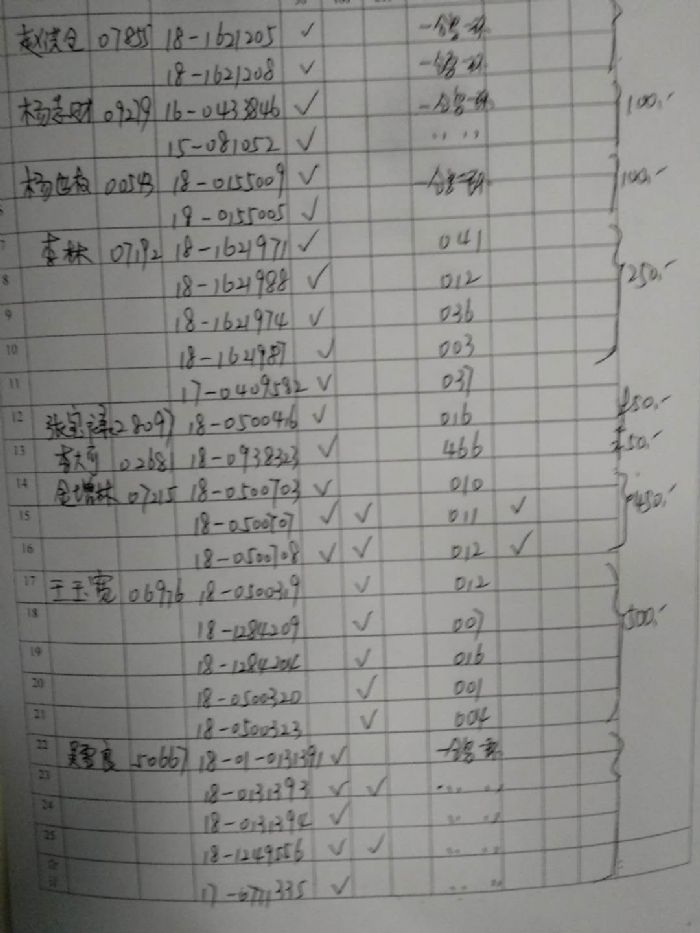 07855 18-1621205 ✓
18-1621208 ✓
杨志财 09279 16-0433846 ✓ 100,-
15-081052 ✓ 〃 〃
杨 00543 18-0155009 ✓ 100,-
19-0155005 ✓
7 李林 07192 18-1621971 ✓ 041
8 18-1621988 ✓ 012 250,-
9 18-1621974 ✓ 036
10 18-1621987 ✓ 003
11 17-0409582 ✓ 037
12 张宝祥 28097 18-0500416 ✓ 016 50,-
13 李大可 02681 18-0938323 ✓ 466 50,-
14 金增林 07215 18-0500703 ✓ 010
15 18-0500707 ✓ ✓ 011 ✓ 450,-
16 18-0500708 ✓ ✓ 012 ✓
17 王玉宽 06976 18-0500319 ✓ 012
18 18-1284209 ✓ 007 500,-
19 18-1284204 ✓ 016
20 18-0500320 ✓ 001
21 18-0500323 ✓ 004
22 50667 18-01-0131391 ✓
23 18-0131393 ✓ ✓ 〃 〃
24 18-0131394 ✓ 〃 〃
25 18-1249556 ✓ ✓ 〃 〃
合计 ✓ 〃 〃